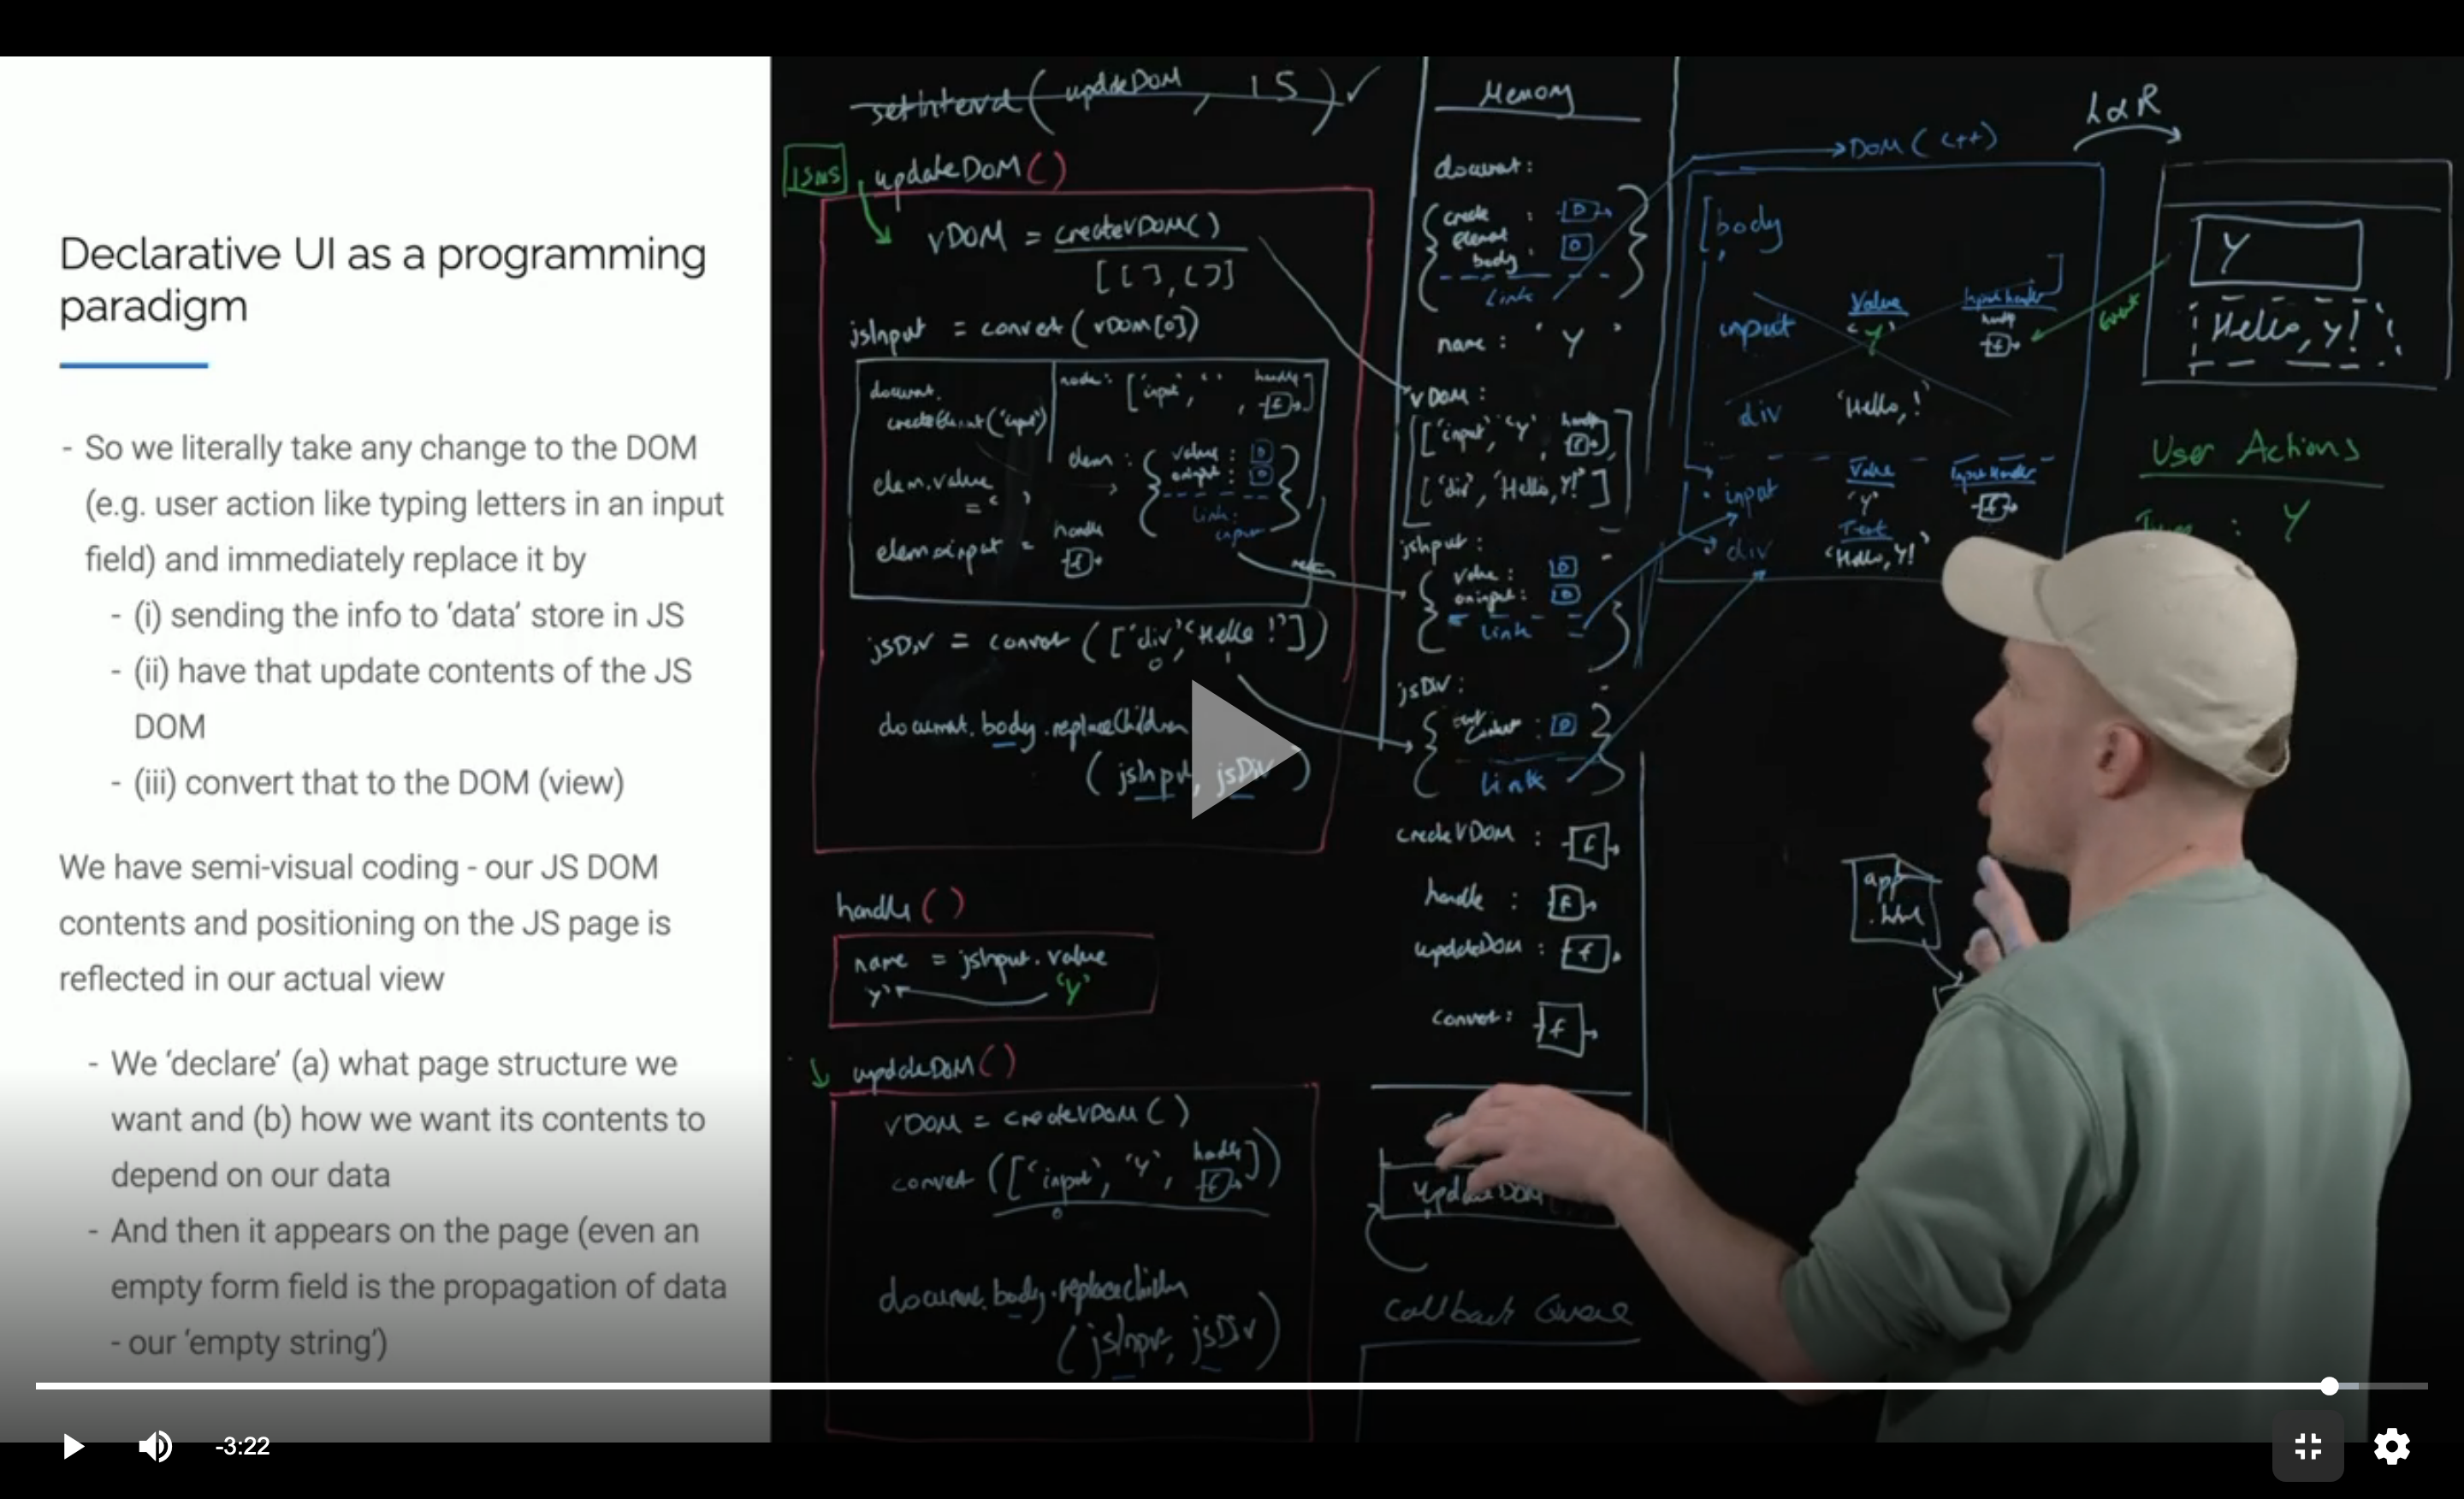 Declarative UI as a programming
paradigm
- So we literally take any change to the DOM
(e.g. user action like typing letters in an input
field) and immediately replace it by
- (i) sending the info to ‘data’ store in JS
- (ii) have that update contents of the JS
DOM
- (iii) convert that to the DOM (view)
We have semi-visual coding - our JS DOM
contents and positioning on the JS page is
reflected in our actual view
- We ‘declare’ (a) what page structure we
want and (b) how we want its contents to
depend on our data
- And then it appears on the page (even an
empty form field is the propagation of data
- our ‘empty string’)
setInterval ( updateDOM , 15 ) ✓
15ms
updateDOM ( )
vDOM = createVDOM()
[ [ ] , [ ] ]
jsInput = convert ( vDOM[0] )
document.
createElement('input')
elem.value
= ' '
elem.oninput = handle
f
node: ['input', ' ', handle f ]
elem : { value :
oninput :
link:
input }
return
jsDiv = convert ( ['div', 'Hello !'] )
0 1
document.body.replaceChildren
( jsInput, jsDiv )
handle ( )
name = jsInput.value
'Y' 'Y'
updateDOM ( )
vDOM = createVDOM ( )
convert ( ['input', 'Y', handle f ] )
0
document.body.replaceChildren
( jsInput, jsDiv )
Memory
document:
{ create
Element :
body :
link }
name : ' Y '
vDOM :
[ ['input', 'Y', handle f ],
['div', 'Hello, Y!'] ]
jsInput :
{ value :
oninput :
link }
jsDiv :
{ text
Content :
link }
createVDOM : f
handle : f
updateDOM : f
convert : f
updateDOM
Callback Queue
DOM ( C++)
[ body
Value
input 'Y' handle f
div 'Hello, !'
Value
input 'Y' f
Text
div 'Hello, Y!'
L&R
Y
Hello, Y!
Event
User Actions
: Y
app
.html
-3:22